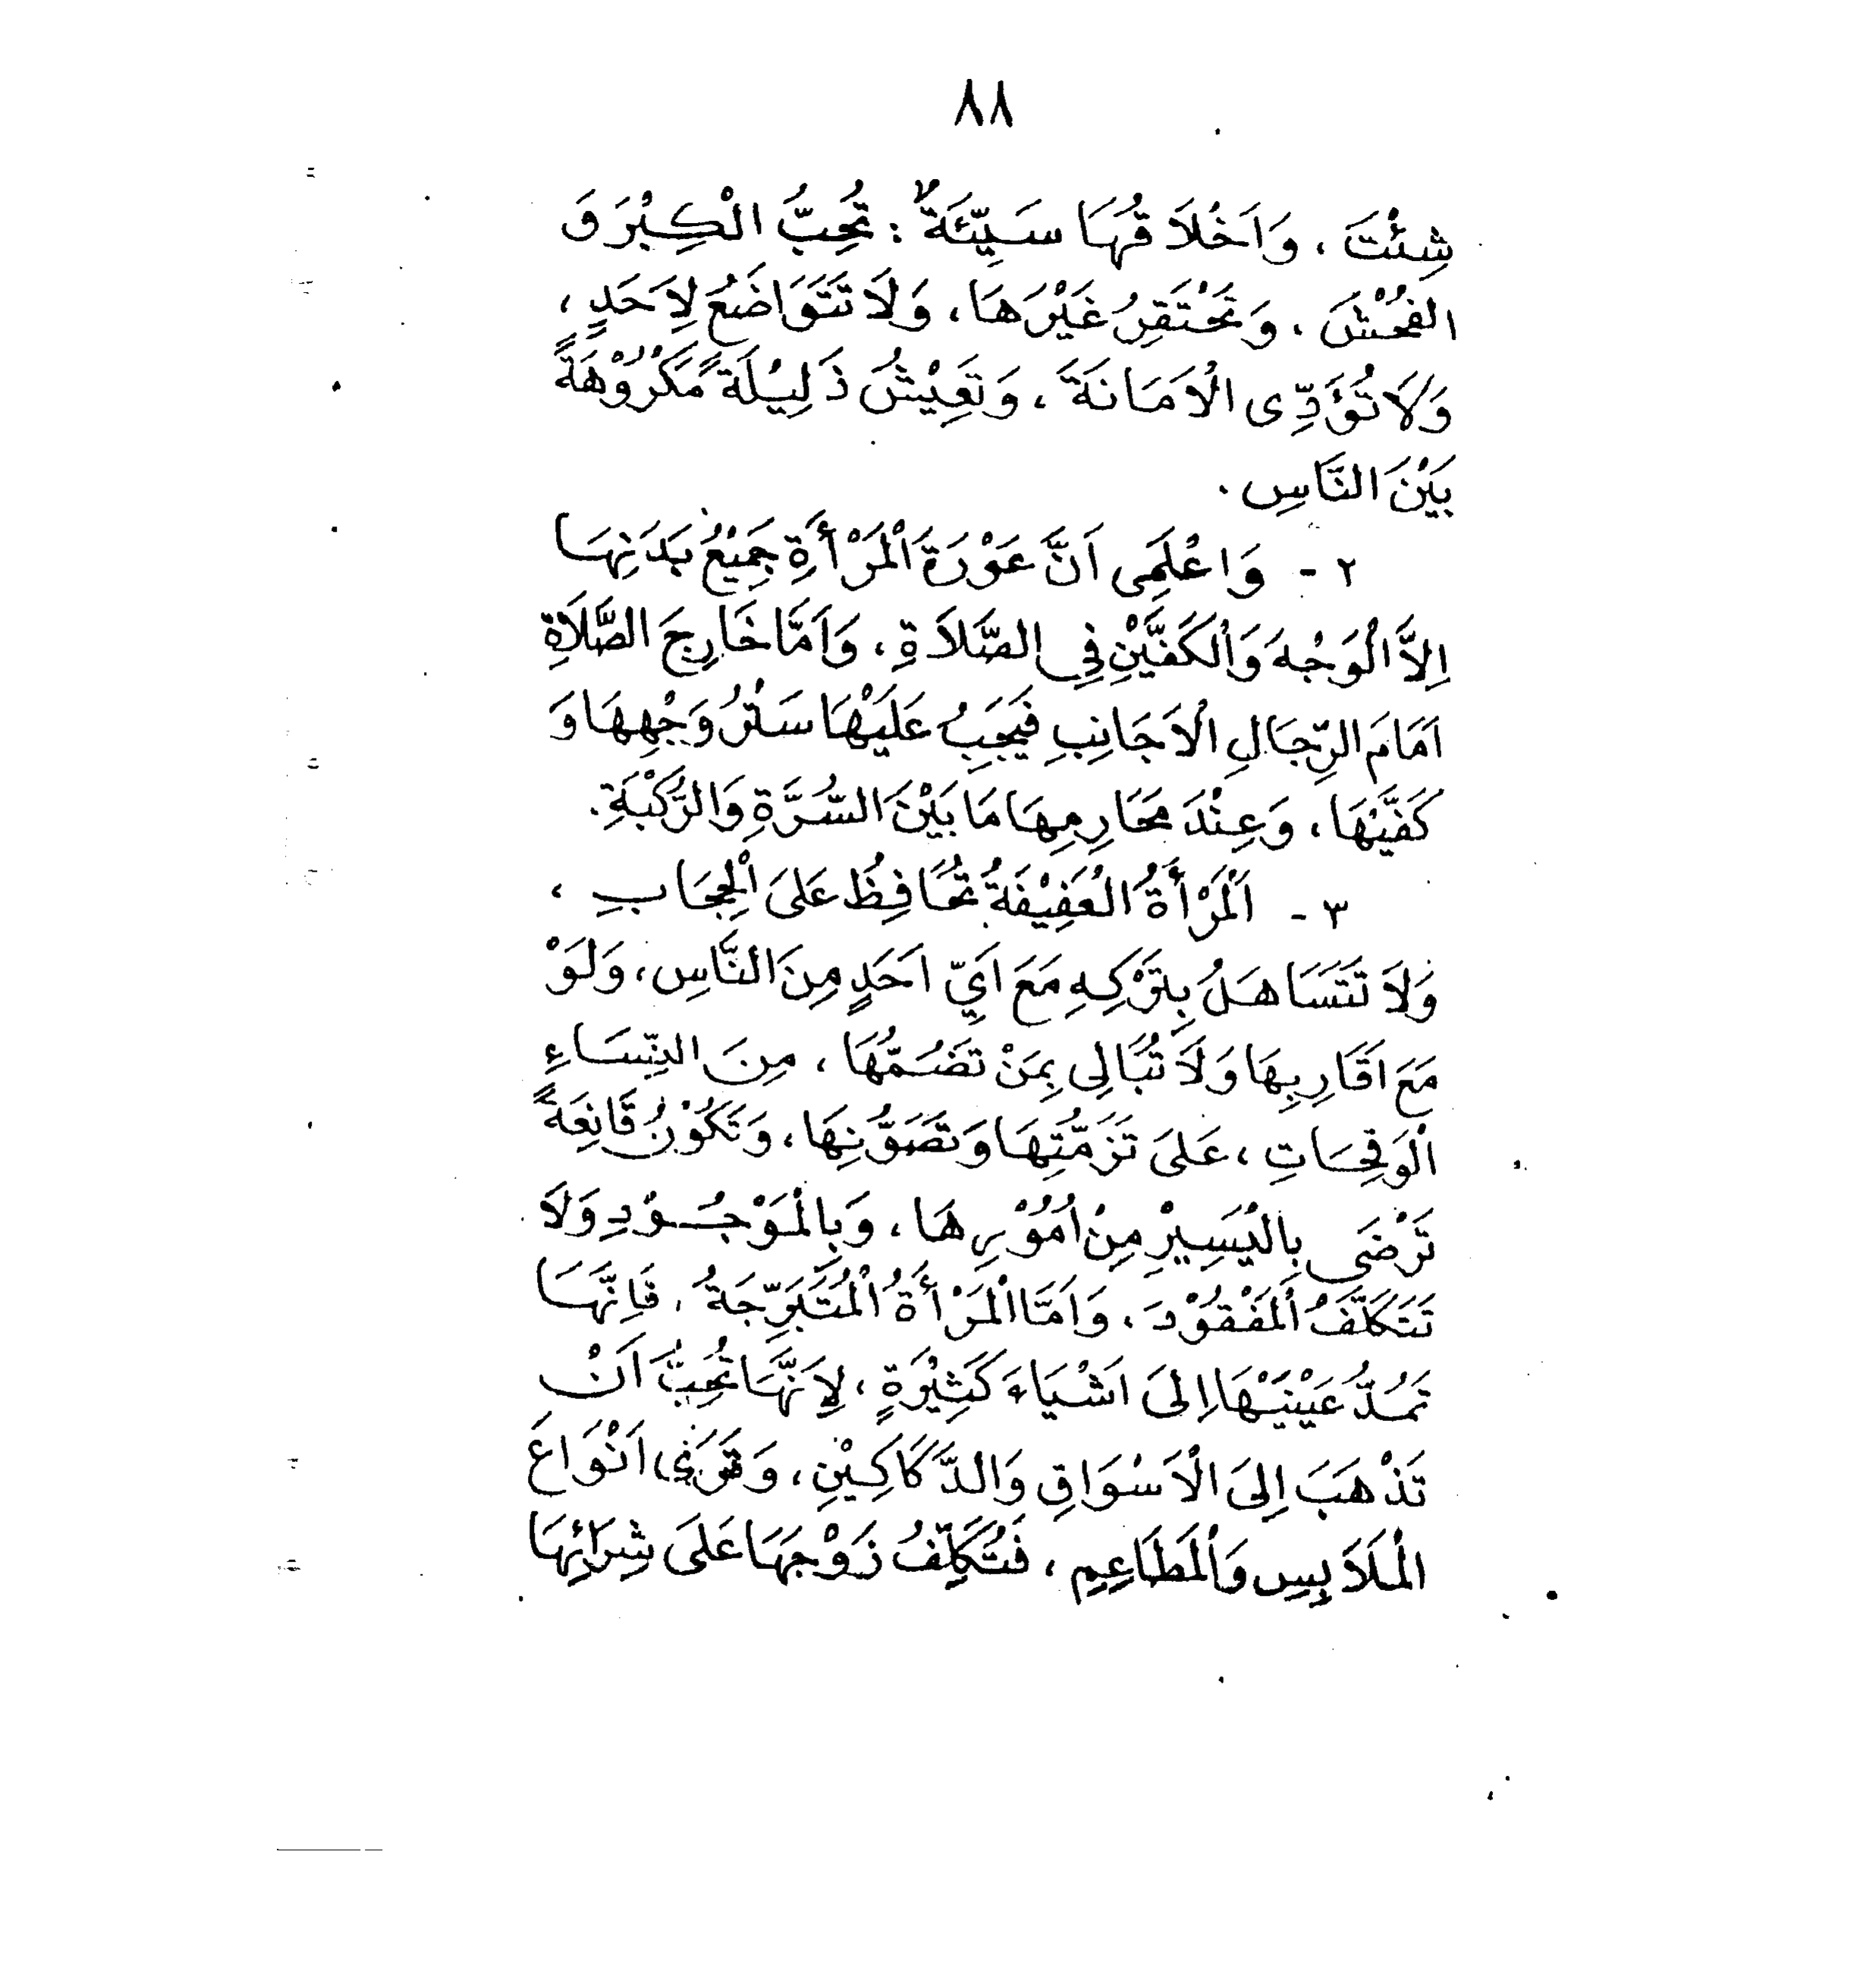 ٨٨
شِئْتَ ، وَاَخْلَاقُهَا سَيِّئَةٌ : تُحِبُّ الْكِبْرَ وَ
الفُحْشَ ، وَتَحْتَقِرُ غَيْرَهَا ، وَلَا تَتَوَاضَعُ لِاَحَدٍ ،
وَلَا تُؤَدِّى الْاَمَانَةَ ، وَتَعِيْشُ ذَلِيْلَةً مَكْرُوْهَةً
بَيْنَ النَّاسِ .
٢ - وَاعْلَمِى اَنَّ عَوْرَةَ الْمَرْأَةِ جَمِيْعُ بَدَنِهَا
اِلَّا الْوَجْهَ وَالْكَفَّيْنِ فِى الصَّلَاةِ ، وَاَمَّا خَارِجَ الصَّلَاةِ
اَمَامَ الرِّجَالِ الْاَجَانِبِ فَيَجِبُ عَلَيْهَا سَتْرُ وَجْهِهَا وَ
كَفَّيْهَا ، وَعِنْدَ مَحَارِمِهَا مَا بَيْنَ السُّرَّةِ وَالرُّكْبَةِ .
٣ - اَلْمَرْأَةُ الْعَفِيْفَةُ تُحَافِظُ عَلَى الْحِجَابِ ،
وَلَا تَتَسَاهَلُ بِتَرْكِهِ مَعَ اَيِّ اَحَدٍ مِنَ النَّاسِ ، وَلَوْ
مَعَ اَقَارِبِهَا وَلَا تُبَالِى بِمَنْ تَضُمُّهَا ، مِنَ النِّسَاءِ
الْوَقِحَاتِ ، عَلَى تَزَمُّتِهَا وَتَصَوُّنِهَا ، وَتَكُوْنُ قَانِعَةً
تَرْضَى بِالْيَسِيْرِ مِنْ اُمُوْرِهَا ، وَبِالْمَوْجُوْدِ وَلَا
تَتَكَلَّفُ الْمَفْقُوْدَ ، وَاَمَّا الْمَرْأَةُ الْمُتَبَرِّجَةُ ، فَاِنَّهَا
تَمُدُّ عَيْنَيْهَا اِلَى اَشْيَاءَ كَثِيْرَةٍ ، لِاَنَّهَا تُحِبُّ اَنْ
تَذْهَبَ اِلَى الْاَسْوَاقِ وَالدَّكَاكِيْنِ ، اَنْوَاعَ
الْمَلَابِسِ وَالْمَطَاعِمِ ، فَتُكَلِّفُ زَوْجَهَا عَلَى شِرَائِهَا